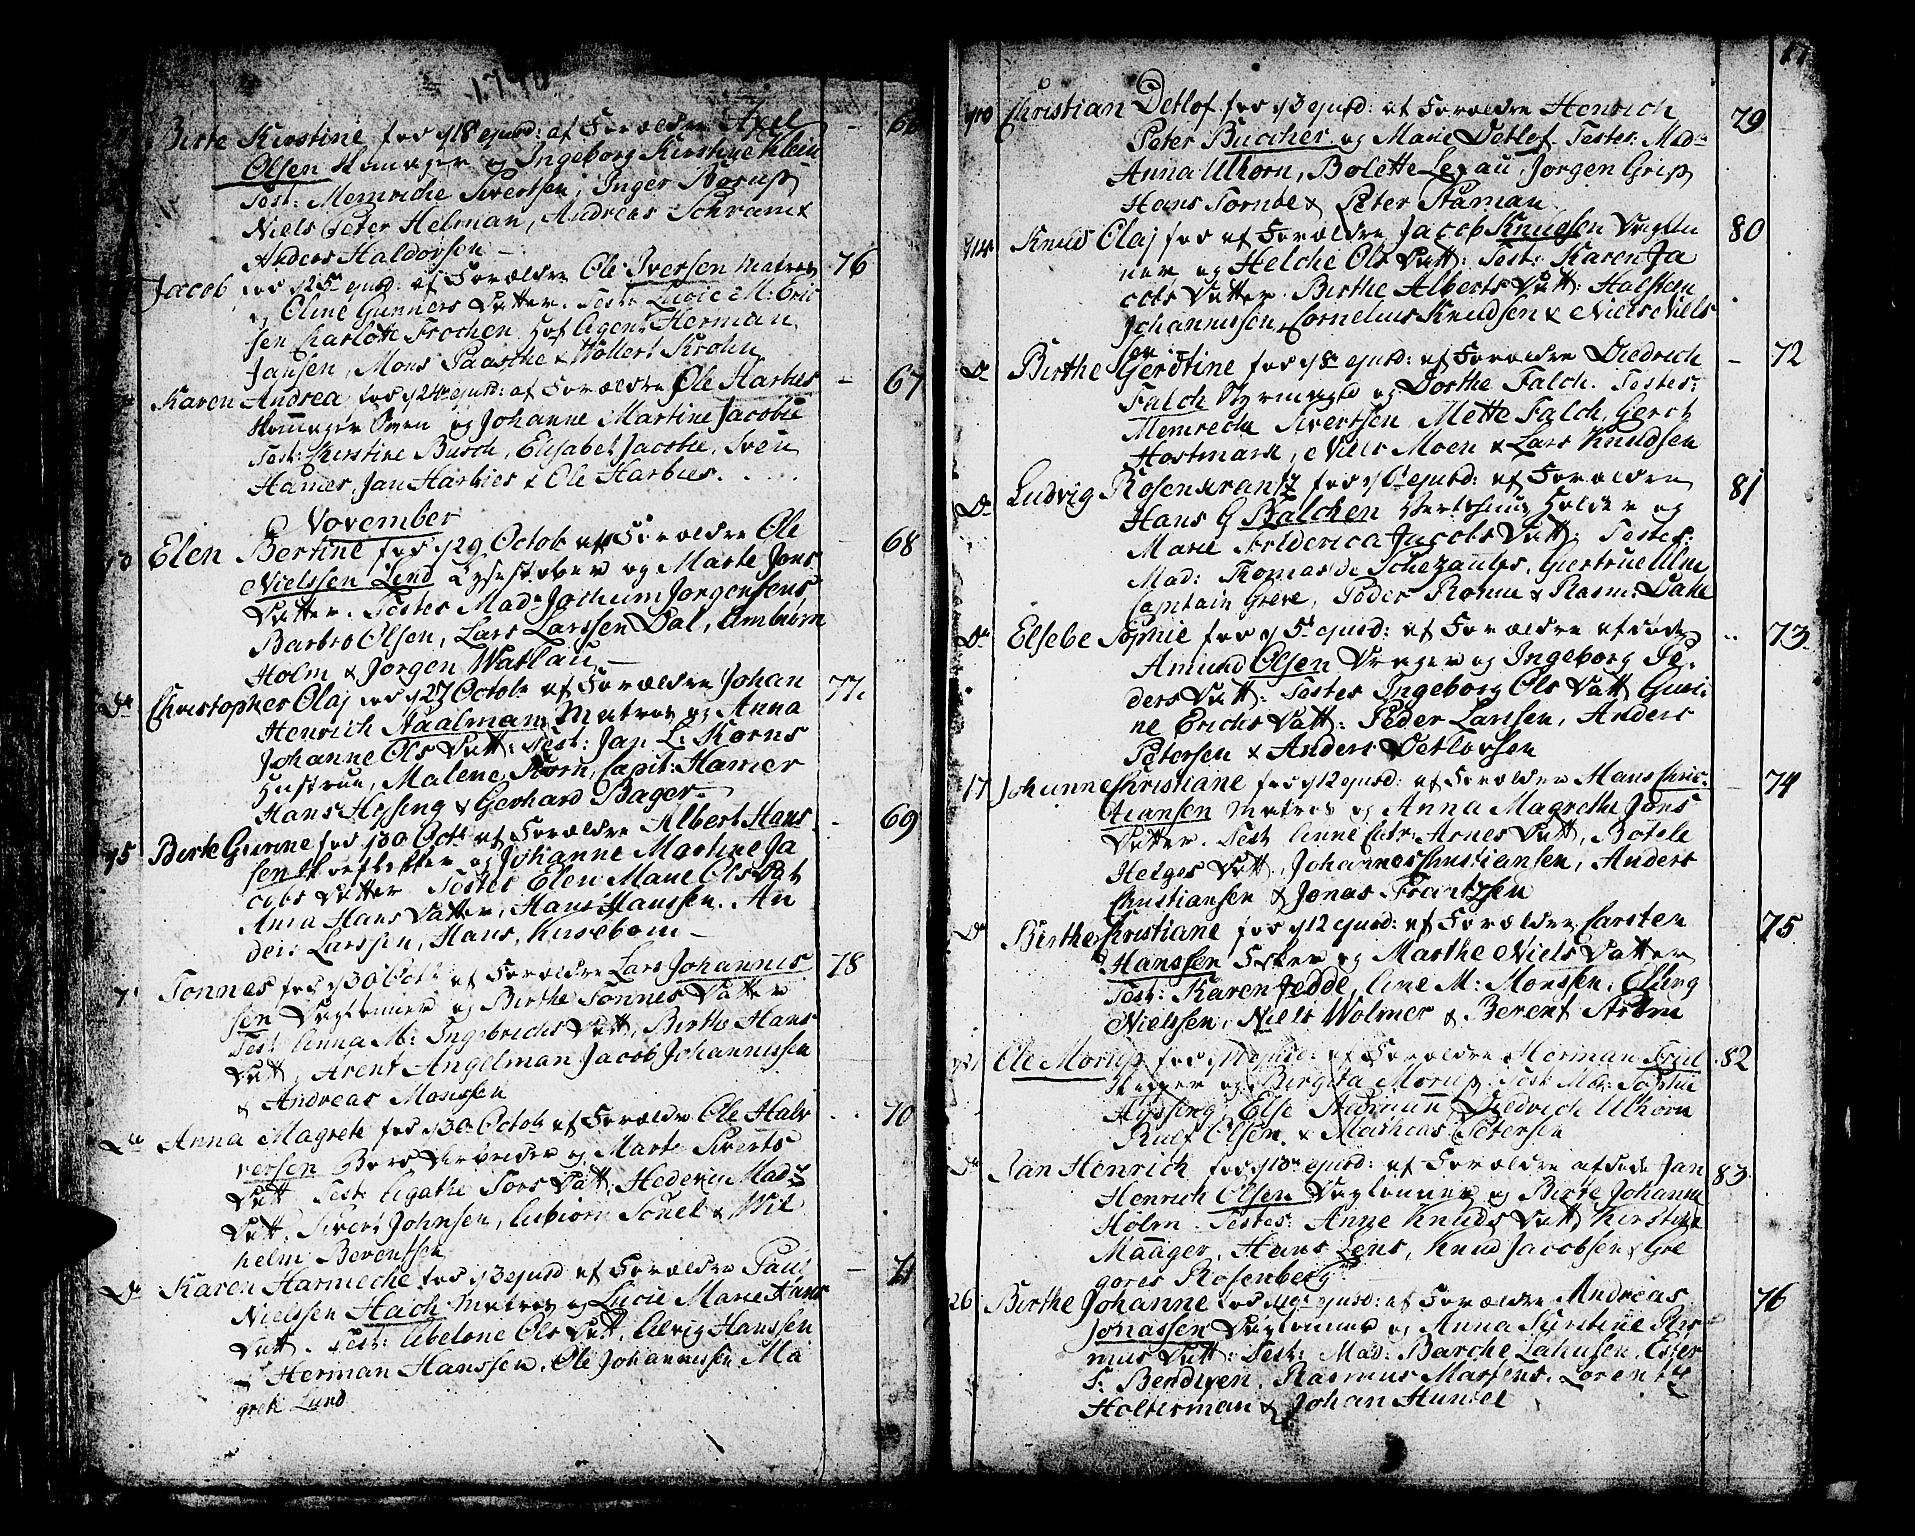 1790
Birte Kirstine fød d 18 ejusd: af Forældre Axel - 66
Olsen Skomager og Ingeborg Kirstine Klein
Test: Memriche Sivertsen, Inger Borup
Niels Peter Helman, Andreas Schram &
Anders Haldorsen -
Jacob, fød d 25 ejusd: af Forældre Ole Iversen Matros 76
og Eline Gunners Datter. Test: Lucie M: Eric
sen Charlotte Frochen, Hof Agent Herman
Jansen, Mons Paaske & Wollert Krohn
Karen Andrea, fød d 24 ejusd: af Forældre Ole Harbies - 67
Skomager Sven og Johanne Martine Jacobie
Test: Kirstine Busch, Elisabet Jacobie, Sven
Hamer, Jan Harbies & Ole Harbies.
November
Elen Bertine fød d 29 Octob af Forældre Ole 68
Nielssen Lind Lysestøber og Marte Jons
Datter. Testes Mad: Jochum Jorgensens
Barbro Olsen, Lars Larssen Dal, Ambiørn
Holm & Jorgen Watlau -
Do Christopher Olaj fød d 27 Octob af Forældre Johan 77.
Henrich Staalman, Matros og Anna
Johanne Ols Datt: Test: Jan L: Korns
Hustrue, Malene Korn, Capit: Hamer
Hans Hysing & Gerhard Bager -
Birte Gurine fød d 30 Oct: af Forældre Albert Hans - 69
sen og Johanne Martine Ja
cobs Datter Testes Elen Marie Ols Dat
Anna Hans Datter, Hans Hanssen. An
ders Larssen, Hans, Kirsebom -
Tonnes fød d 30 Oct: af Forældre Lars Johannis 78
sen Daglønner og Birthe Tonnes Datter
Test: Anna M: Ingebrichs Datt, Birthe Hans
Datt, Arent Angelman Jacob Johannissen
& Andreas Monssen
Do Anna Magrete fød d 30 Octob af Forældre Ole Halv 70
versen og Marte Siverts
Datt Test: Agathe Tors Datt, Mads
Datt, Sivert Johnsen, Sonel & Wil
helm Berentsen
Do Karen Harmeche fød d 3 ejusd af Forældre Paul - 71
Nielssen Hach Matros og Lucie Marie Hans
Datt. Test: Abelone Ols Datt, Elevig Hanssen
Herman Hanssen, Ole Johannissen Ma
grete Lund
Christian Detlof fød d 3 ejusd: af Forældre Henrich 79
Peter Buccher og Marie Detlof. Testes: Mad
Anna Ulhorn, Bolette Lexau, Jorgen Grip
Hans Tornbe & Peter Staman
Knud Olaj fød af Forældre Jacob Knudsen Dagløn 80
ner og Helche Ols Datt: Test: Karen Ja
cobs Datter. Birthe Alberts Datt: Halsten
Johannissen, Cornelius Knudsen & Niels Niels
sen
Do Birthe Gerdtine fød d 8 ejusd: af Forældre Diedrich - 72
Falch Styrmand og Dorthe Falch. Testes:
Memrecha Sivertsen, Mette Falch, Gerot
Hostmark, Niels Moen & Lars Knudsen
Do Ludvig Rosenkrantz fød d 6 ejusd: af Forældre 81
Hans G Balchen Vertshuus Holder og
Marie Friderica Jacobs Datt: Testes:
Mad: Thomas de Schezantes, Giertrue Ulm
Captain Greve, Peder Ronne & Rasm: Dahl
Do Elsebe Sophie fød d 5 ejusd: af Forældre afdøde 73
Amund Olsen Drager og Ingeborg Pe-
ders Datt: Testes Ingeborg Ols Datt Guri-
ne Erichs Datt: Peder Larssen, Anders
Petersen & Anders Detlorsen
17 Johanne Christiane fød d 12 ejusd: af Forældre Hans Chris- - 74
tiansen Matros og Anna Magrethe Jons
Datter. Test: Anne Catr: Arnes Datt, Botele
Helges Datt, Johannes Christiansen, Anders
Christiansen & Jonas Frantzen
Do Birthe Christiane fød d 12 ejusd: af Forældre Carsten 75
Hanssen Fisker og Marthe Niels Datter
Test: Karen Jedde, Ane M: Monssen, Elling
Nielssen, Niels Wolmer & Berent Strøm
Ole Morup fød d ejusd: af Forældre Herman Friel 82
og Birgita Morup. Test: Mad: Sophie
Hyssing, Else Stamann Diedrich Ulhorn
Rulf Olsen & Mathias Petersen
Do Jan Henrich fød d 13 ejusd: af Forældre afdøde Jan 83
Henrich Olsen Daglønner og Birte Johanne
Holm. Testes: Anne Knuds Datt Kirstine
Maager, Hans Lens, Knud Jacobsen & Gre
gores Rosenberg
26 Birthe Johanne fød ejusd: af Forældre Andreas 76
Jonassen Daglønner og Anna Kirstine Ras
mus Datt: Test: Mad: Barche Lahusen, Ester
S: Bendixen, Rasmus Martens, Lorentz
Holterman & Johan Hunsel